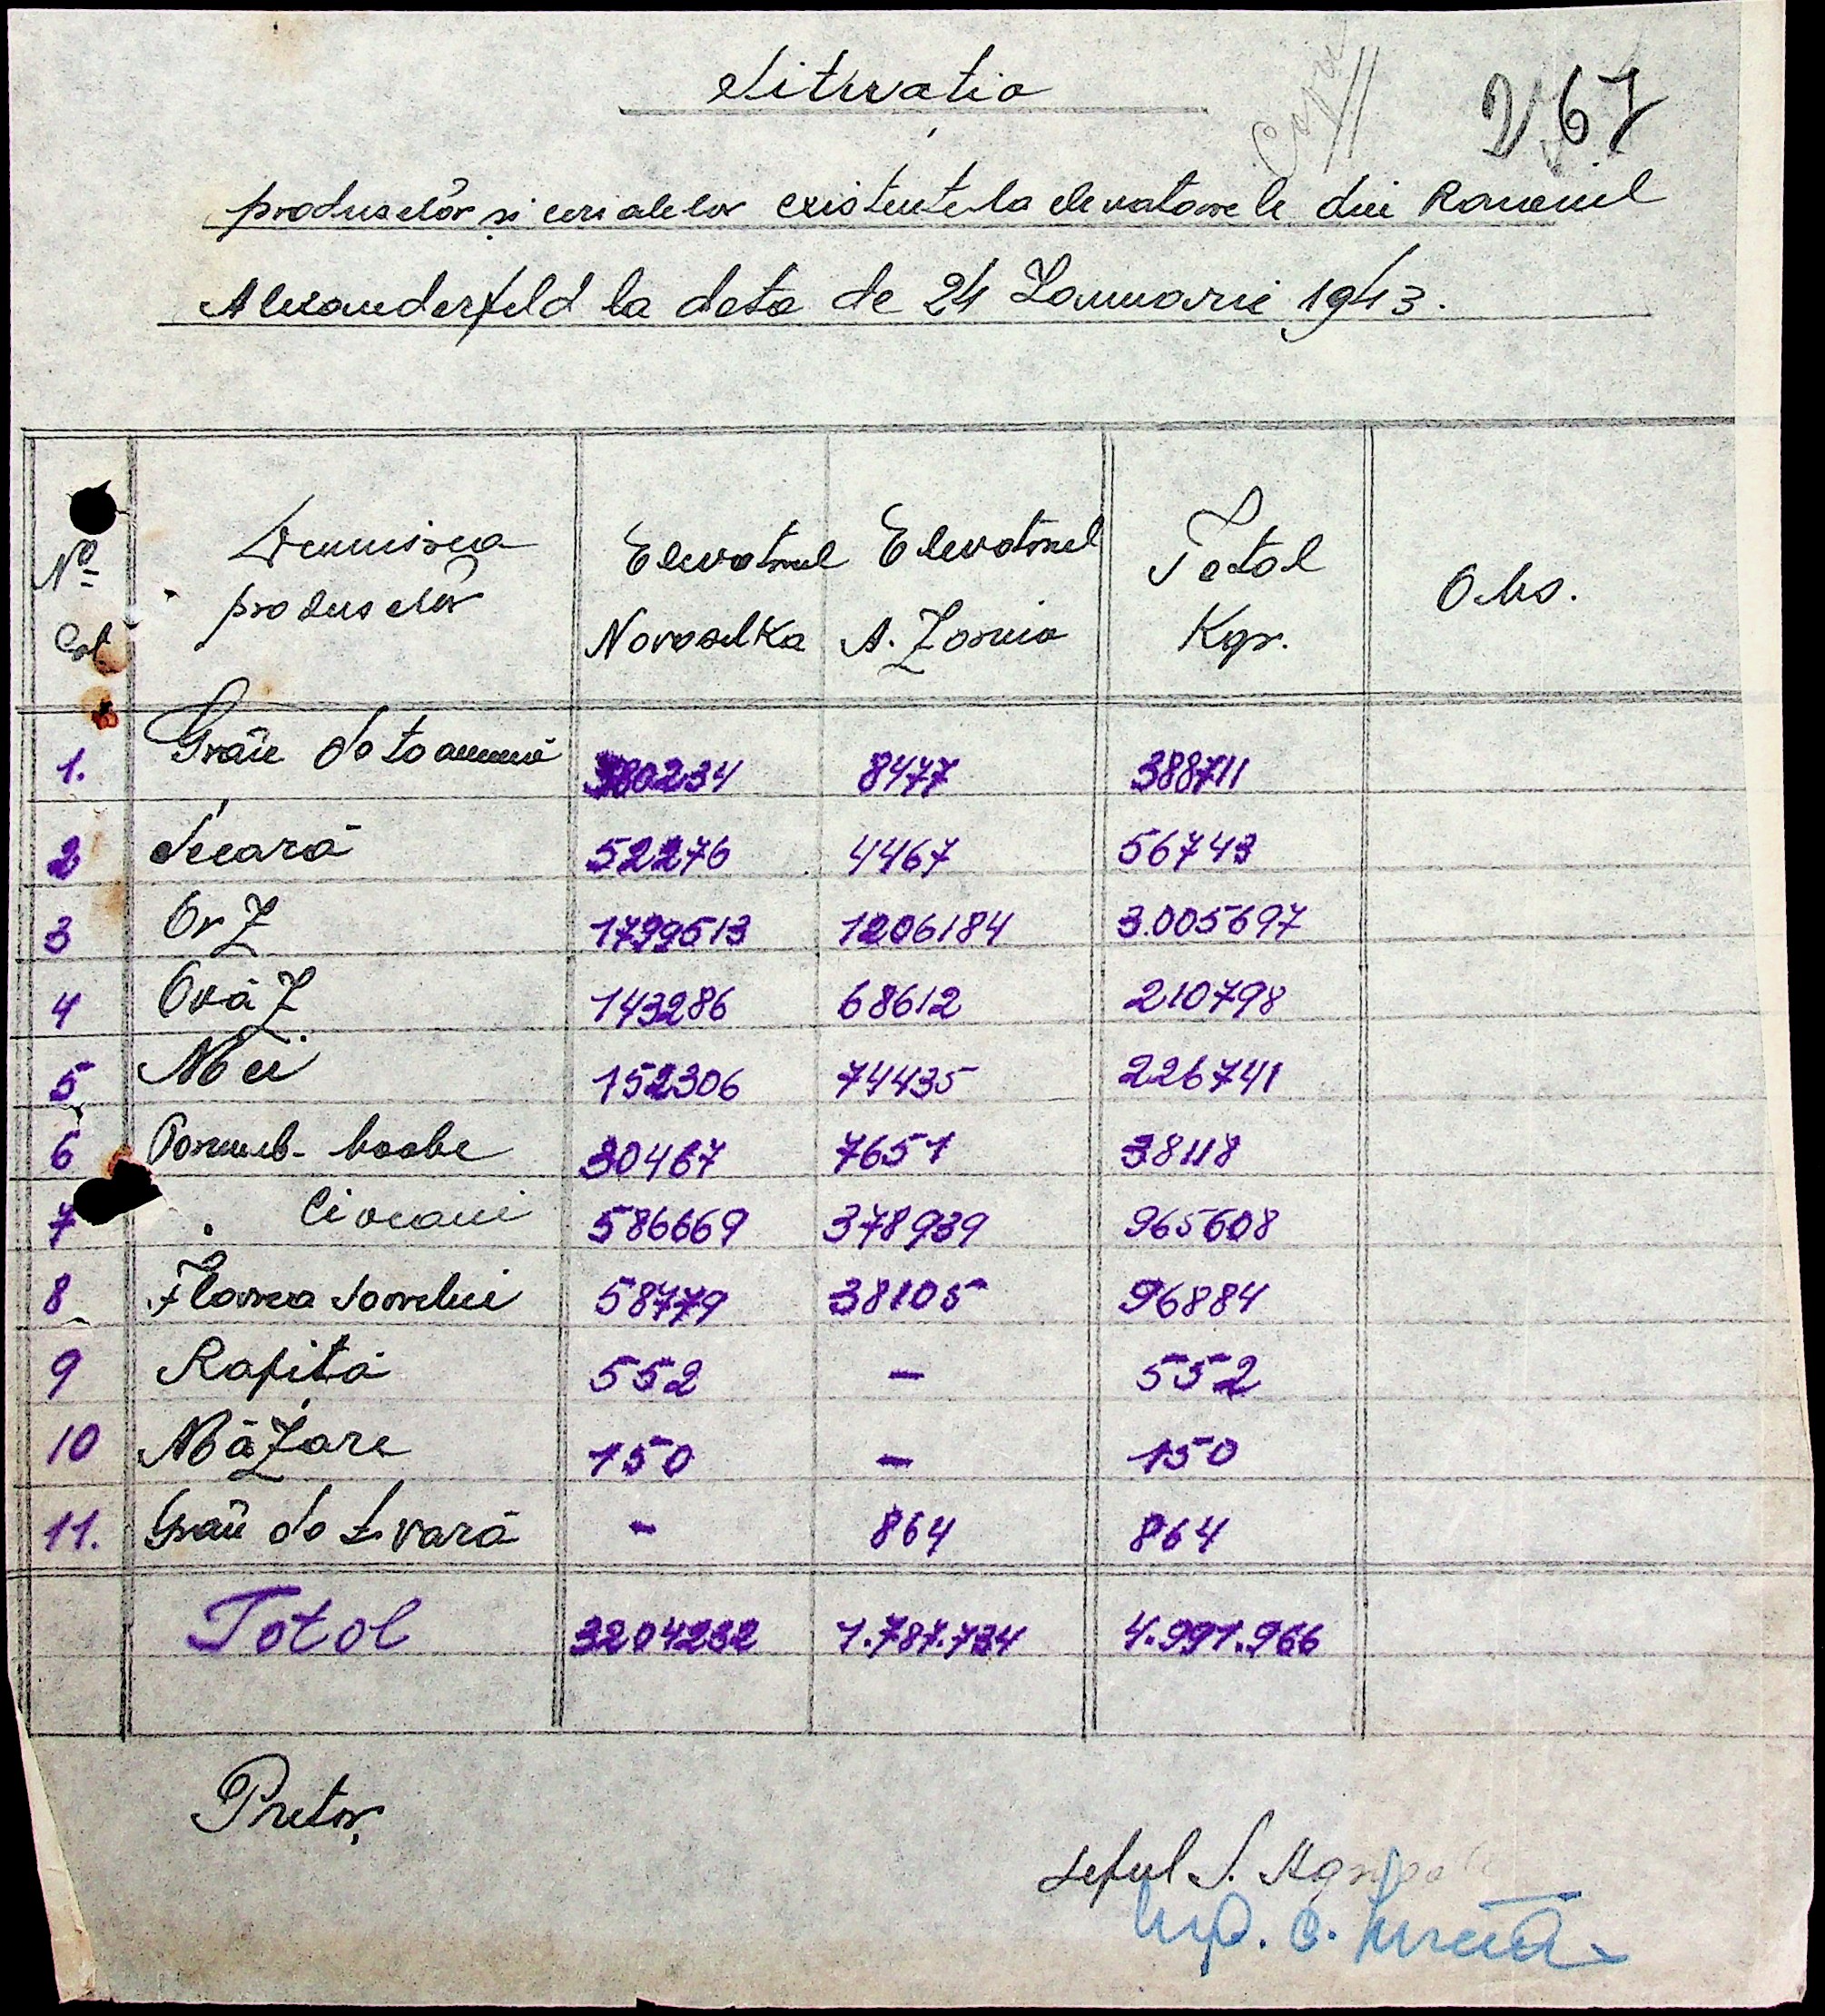 Situatia
Copie
267
produselor si cerialelor existente la elevatoarele din Raionul
Alexanderfeld la data de 24 Ianuarie 1943.
No Crt. | Denumirea produselor | Elevatorul Novoselka | Elevatorul A. Zornia | Total Kgr. | Obs.
1. Grâu de toamnă 380234 8477 388711
2 Secară 52276 4467 56743
3 Orz 1799513 1206184 3.005697
4 Ovăz 143286 68612 210798
5 Mei 152306 74435 226741
6 Porumb boabe 30467 7651 38118
7 " Ciocani 586669 378939 965608
8 Floarea soarelui 58779 38105 96884
9 Rapiță 552 — 552
10 Măzare 150 — 150
11. Grâu de I. vară - 864 864
Total 3204232 1.787.734 4.991.966
Pretor,
Seful S. Agricol